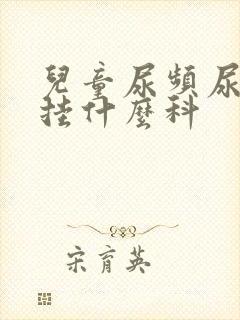 兒童尿頻尿
掛什麼科
宋育英